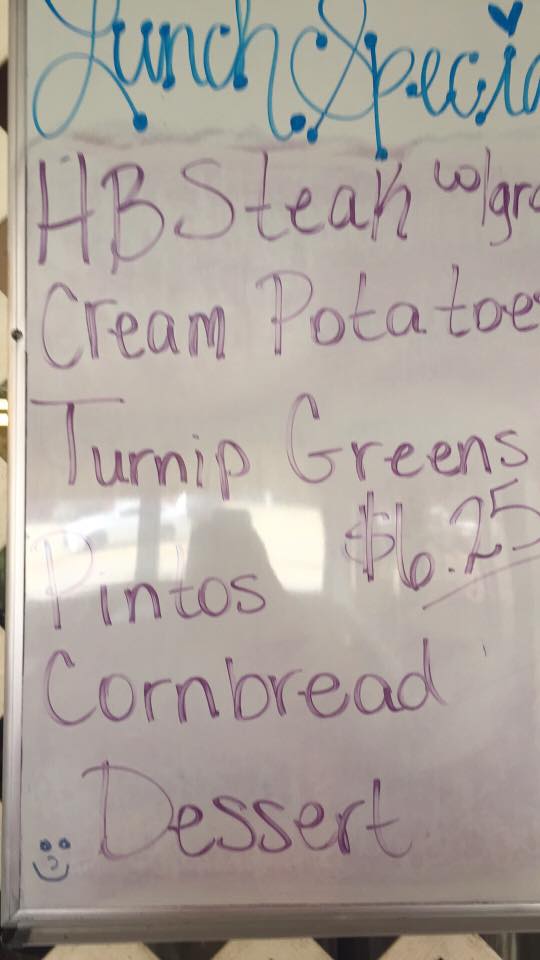 Lunch Specia
HB Steak w/gra
Cream Potatoe
Turnip Greens
$6.25
Pintos
Cornbread
Dessert